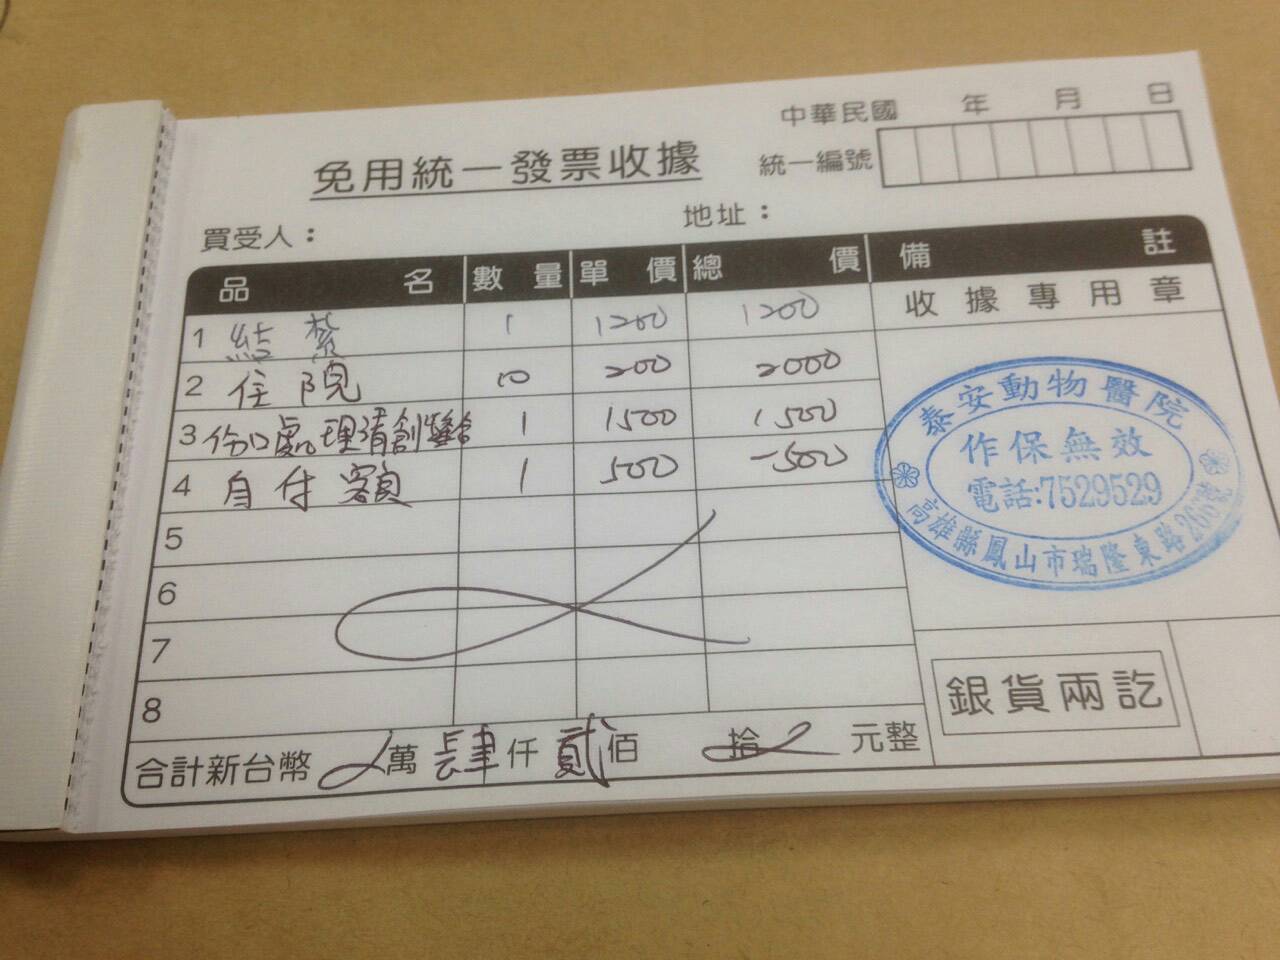 中華民國 年 月 日
免用統一發票收據 統一編號
買受人： 地址：
品名 數量 單價 總價 備註
收據專用章
1 結紮 1 1200 1200
2 住院 10 200 2000
3 傷口處理清創縫合 1 1500 1500
4 自付額 1 500 -500
5
6
7
8
合計新台幣 萬肆仟貳佰 拾 元整
泰安動物醫院
作保無效
電話:7529529
高雄縣鳳山市瑞隆東路265號
銀貨兩訖